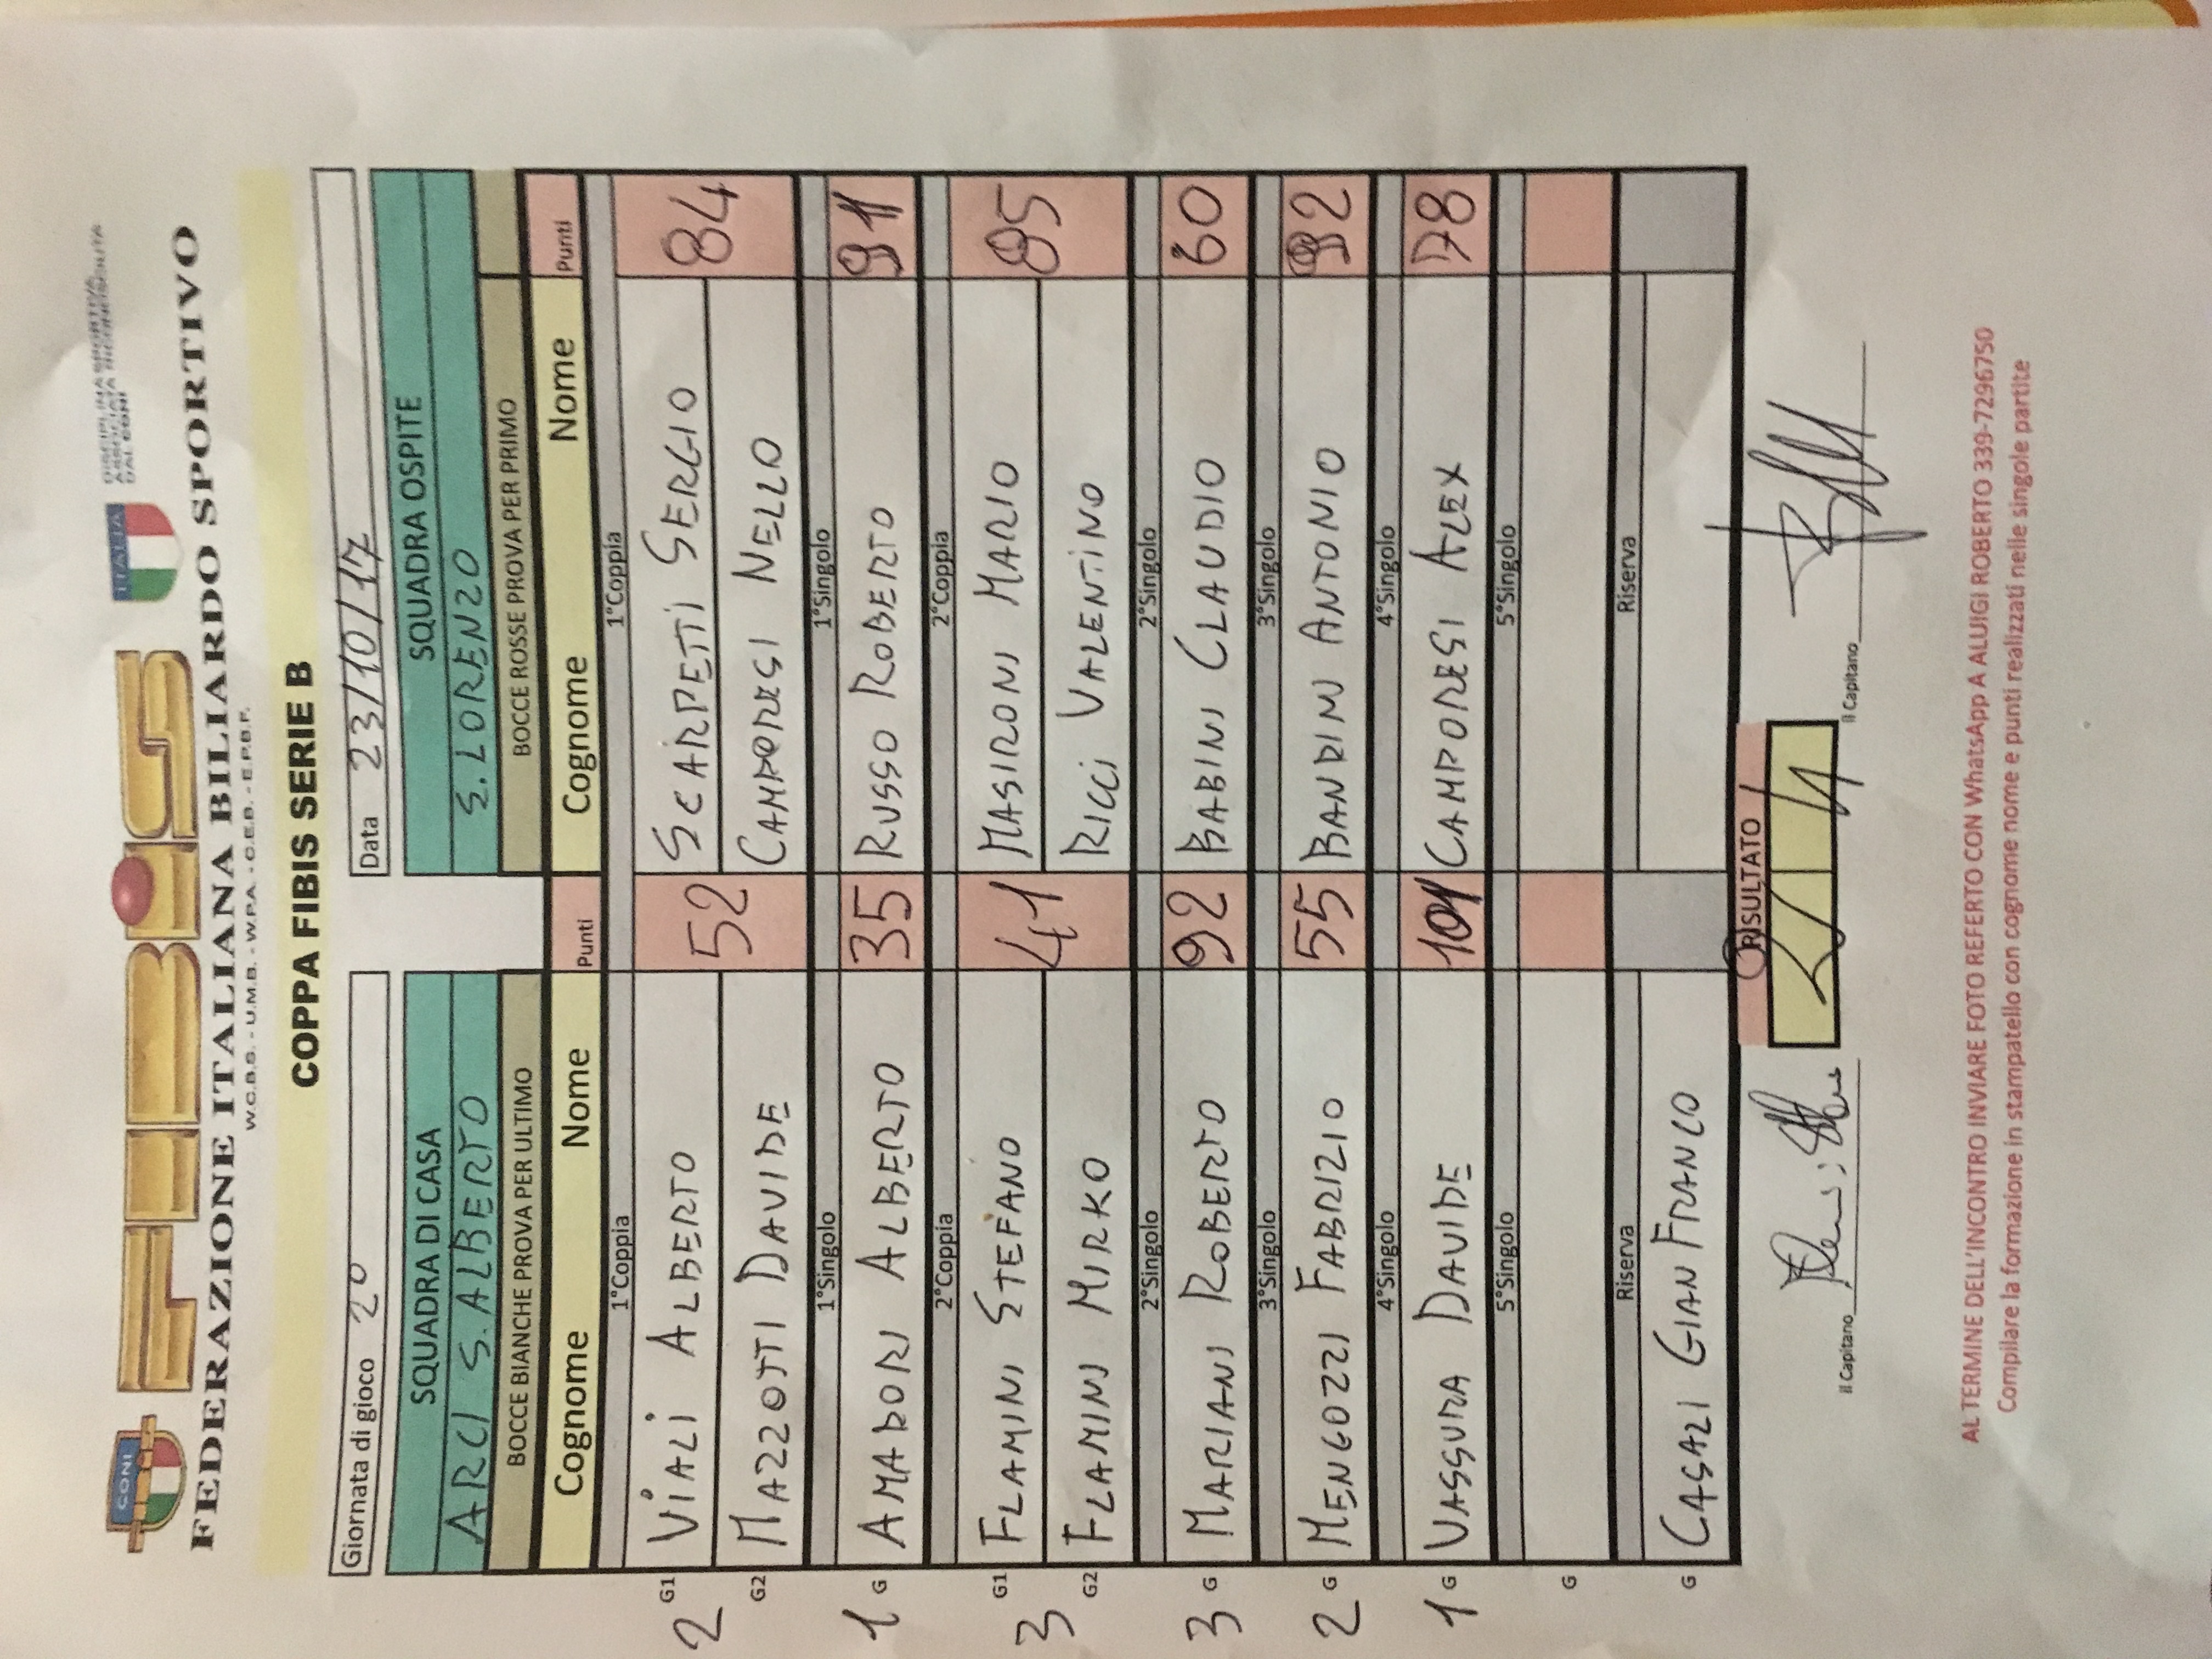 CONI
FIBiS
ITALIA
DISCIPLINA SPORTIVA
ASSOCIATA RICONOSCIUTA
DAL CONI
FEDERAZIONE ITALIANA BILIARDO SPORTIVO
W.C.B.S. - U.M.B. - W.P.A. - C.E.B. - E.P.B.F.
COPPA FIBIS SERIE B
Giornata di gioco 2° Data 23/10/17
SQUADRA DI CASA SQUADRA OSPITE
ARCI S. ALBERTO S. LORENZO
BOCCE BIANCHE PROVA PER ULTIMO BOCCE ROSSE PROVA PER PRIMO
Cognome Nome Punti Cognome Nome Punti
1°Coppia 1°Coppia
2 G1 VIALI ALBERTO 52 SCARPETTI SERGIO 84
G2 MAZZOTTI DAVIDE CAMPORESI NELLO
1°Singolo 1°Singolo
1 G AMADORI ALBERTO 35 RUSSO ROBERTO 91
2°Coppia 2°Coppia
3 G1 FLAMINI STEFANO 41 MASIRONI MARIO 85
G2 FLAMINI MIRKO RICCI VALENTINO
2°Singolo 2°Singolo
3 G MARIANI ROBERTO 92 BABINI CLAUDIO 60
3°Singolo 3°Singolo
2 G MENGOZZI FABRIZIO 55 BANDINI ANTONIO 92
4°Singolo 4°Singolo
1 G VASSURA DAVIDE 101 CAMPORESI ALEX 78
5°Singolo 5°Singolo
G
Riserva Riserva
G CASAZI GIAN FRANCO
RISULTATO
2 4
il Capitano il Capitano
AL TERMINE DELL'INCONTRO INVIARE FOTO REFERTO CON WhatsApp A ALUIGI ROBERTO 339-7296750
Compilare la formazione in stampatello con cognome nome e punti realizzati nelle singole partite